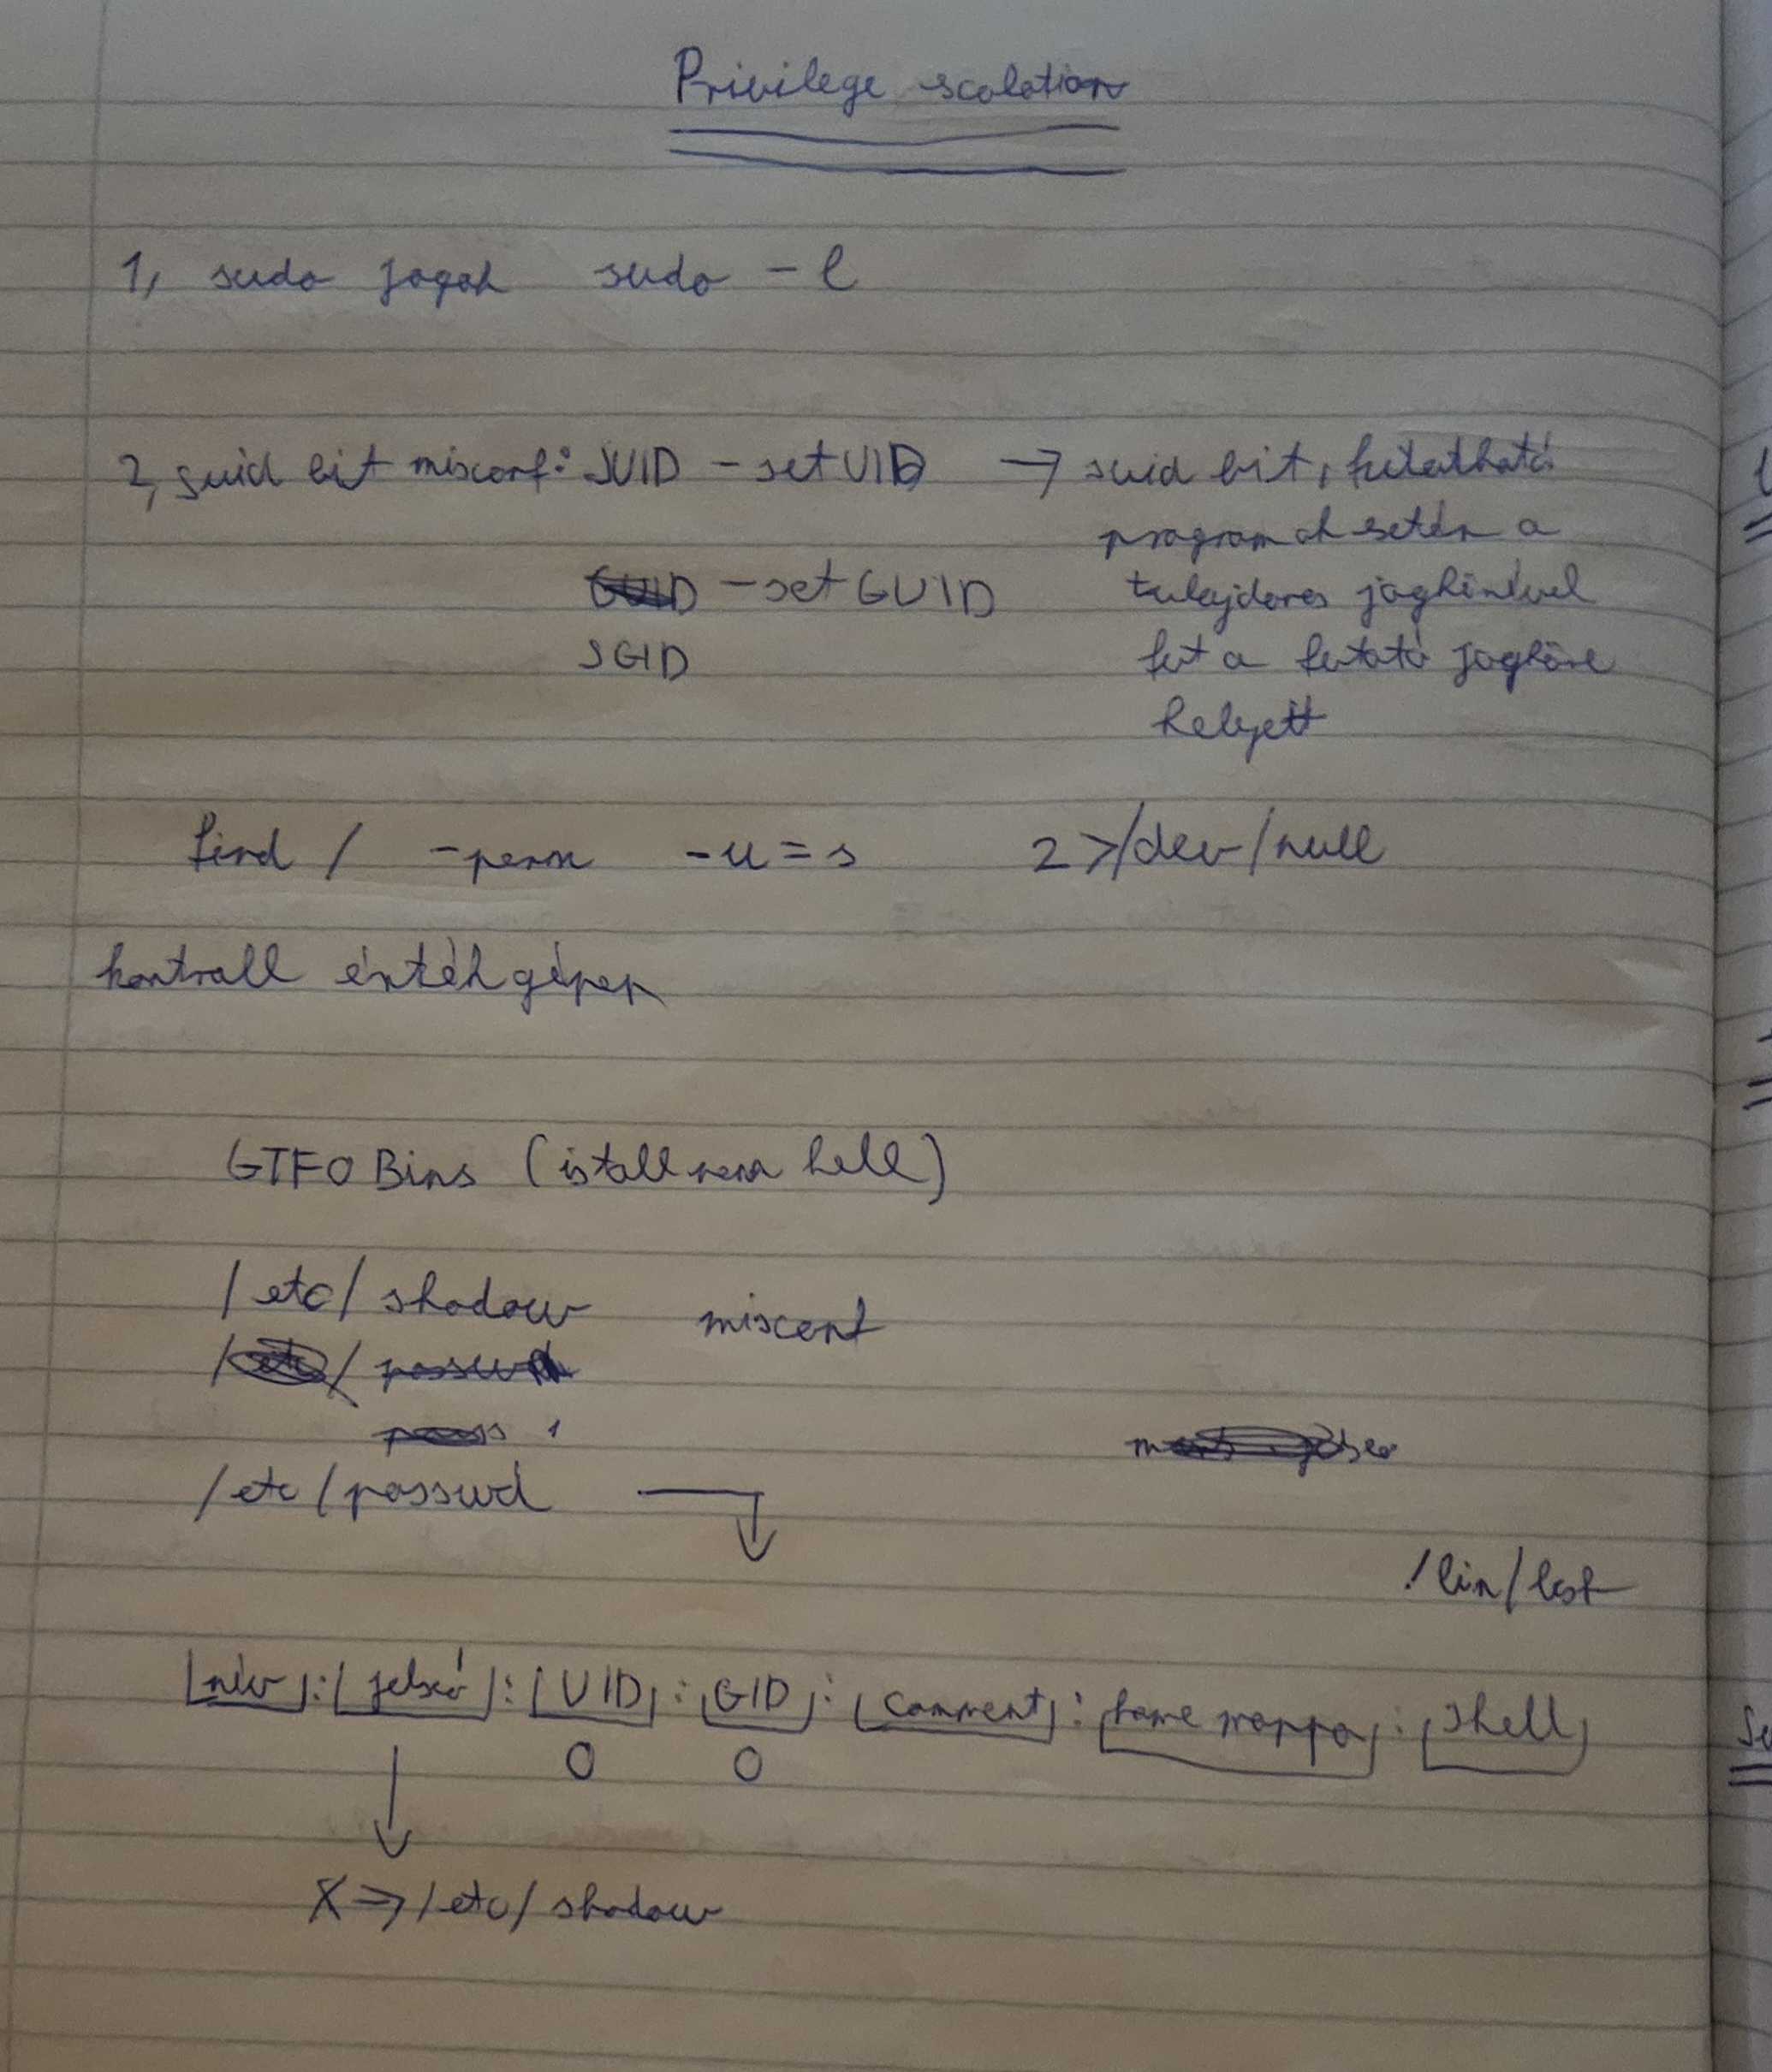 Privilege scalation
1, sudo jogok sudo -l
2, suid bit misconf: SUID - setUID → suid bit, futatható
programok setén a
- setGUID tulajdonos jogkörével
SGID fut a futtató jogköre
helyett
find / -perm -u=s 2>/dev/null
kontroll érték gépen
GTFO Bins (istall nem kell)
/etc/shadow misconf
/etc/passwd
/etc/passwd →
/bin/bash
név : jelszó : UID : GID : comment : home mappa : shell
0 0
X ⇒ /etc/shadow